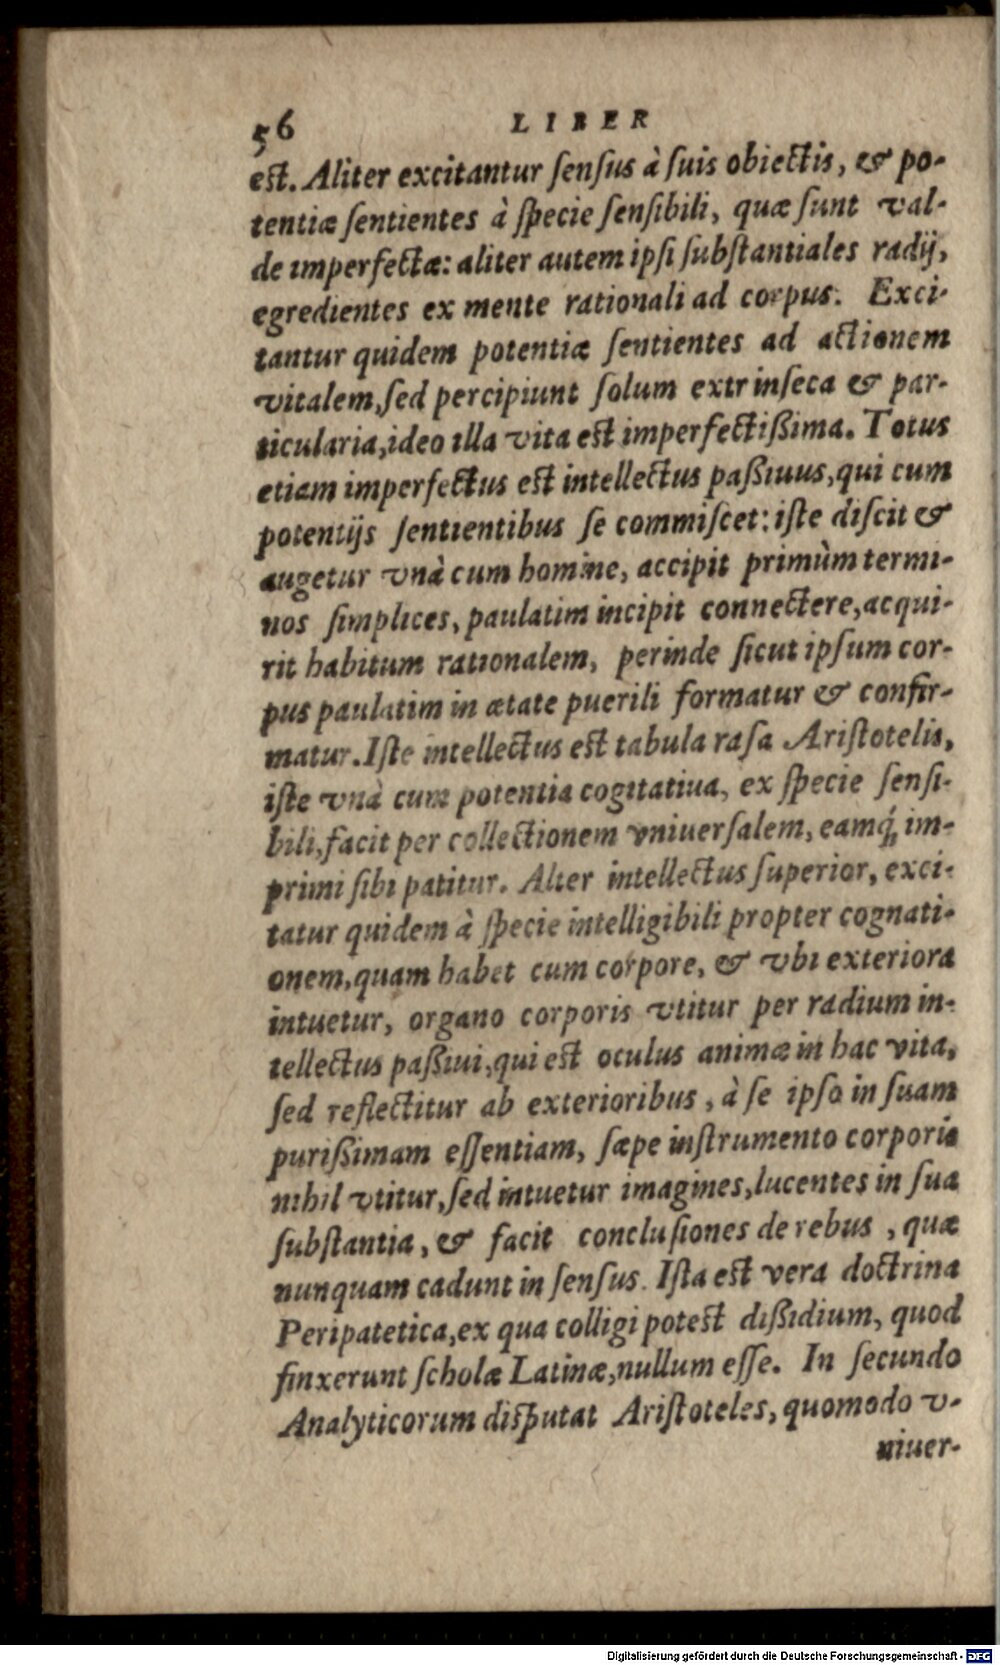 56 LIBER
est. Aliter excitantur sensus à suis obiectis, & po-
tentiæ sentientes à specie sensibili, quæ sunt val-
de imperfectæ: aliter autem ipsi substantiales radij,
egredientes ex mente rationali ad corpus. Exci-
tantur quidem potentiæ sentientes ad actionem
vitalem, sed percipiunt solum extrinseca & par-
ticularia, ideo illa vita est imperfectißima. Totus
etiam imperfectus est intellectus paßiuus, qui cum
potentijs sentientibus se commiscet: iste discit &
augetur vnà cum homine, accipit primùm termi-
nos simplices, paulatim incipit connectere, acqui-
rit habitum rationalem, perinde sicut ipsum cor-
pus paulatim in ætate puerili formatur & confir-
matur. Iste intellectus est tabula rasa Aristotelis,
iste vnà cum potentia cogitatiua, ex specie sensi-
bili, facit per collectionem vniuersalem, eamq́; im-
primi sibi patitur. Alter intellectus superior, exci-
tatur quidem à specie intelligibili propter cognati-
onem, quam habet cum corpore, & vbi exteriora
intuetur, organo corporis vtitur per radium in-
tellectus paßiui, qui est oculus animæ in hac vita,
sed reflectitur ab exterioribus, à se ipso in suam
purißimam essentiam, sæpe instrumento corporis
nihil vtitur, sed intuetur imagines, lucentes in sua
substantia, & facit conclusiones de rebus, quæ
nunquam cadunt in sensus. Ista est vera doctrina
Peripatetica, ex qua colligi potest dißidium, quod
finxerunt scholæ Latinæ, nullum esse. In secundo
Analyticorum disputat Aristoteles, quomodo v-
niuer-
Digitalisierung gefördert durch die Deutsche Forschungsgemeinschaft - DFG